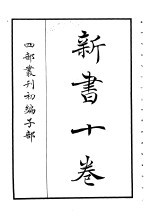 新書十卷
四部叢刊初編子部